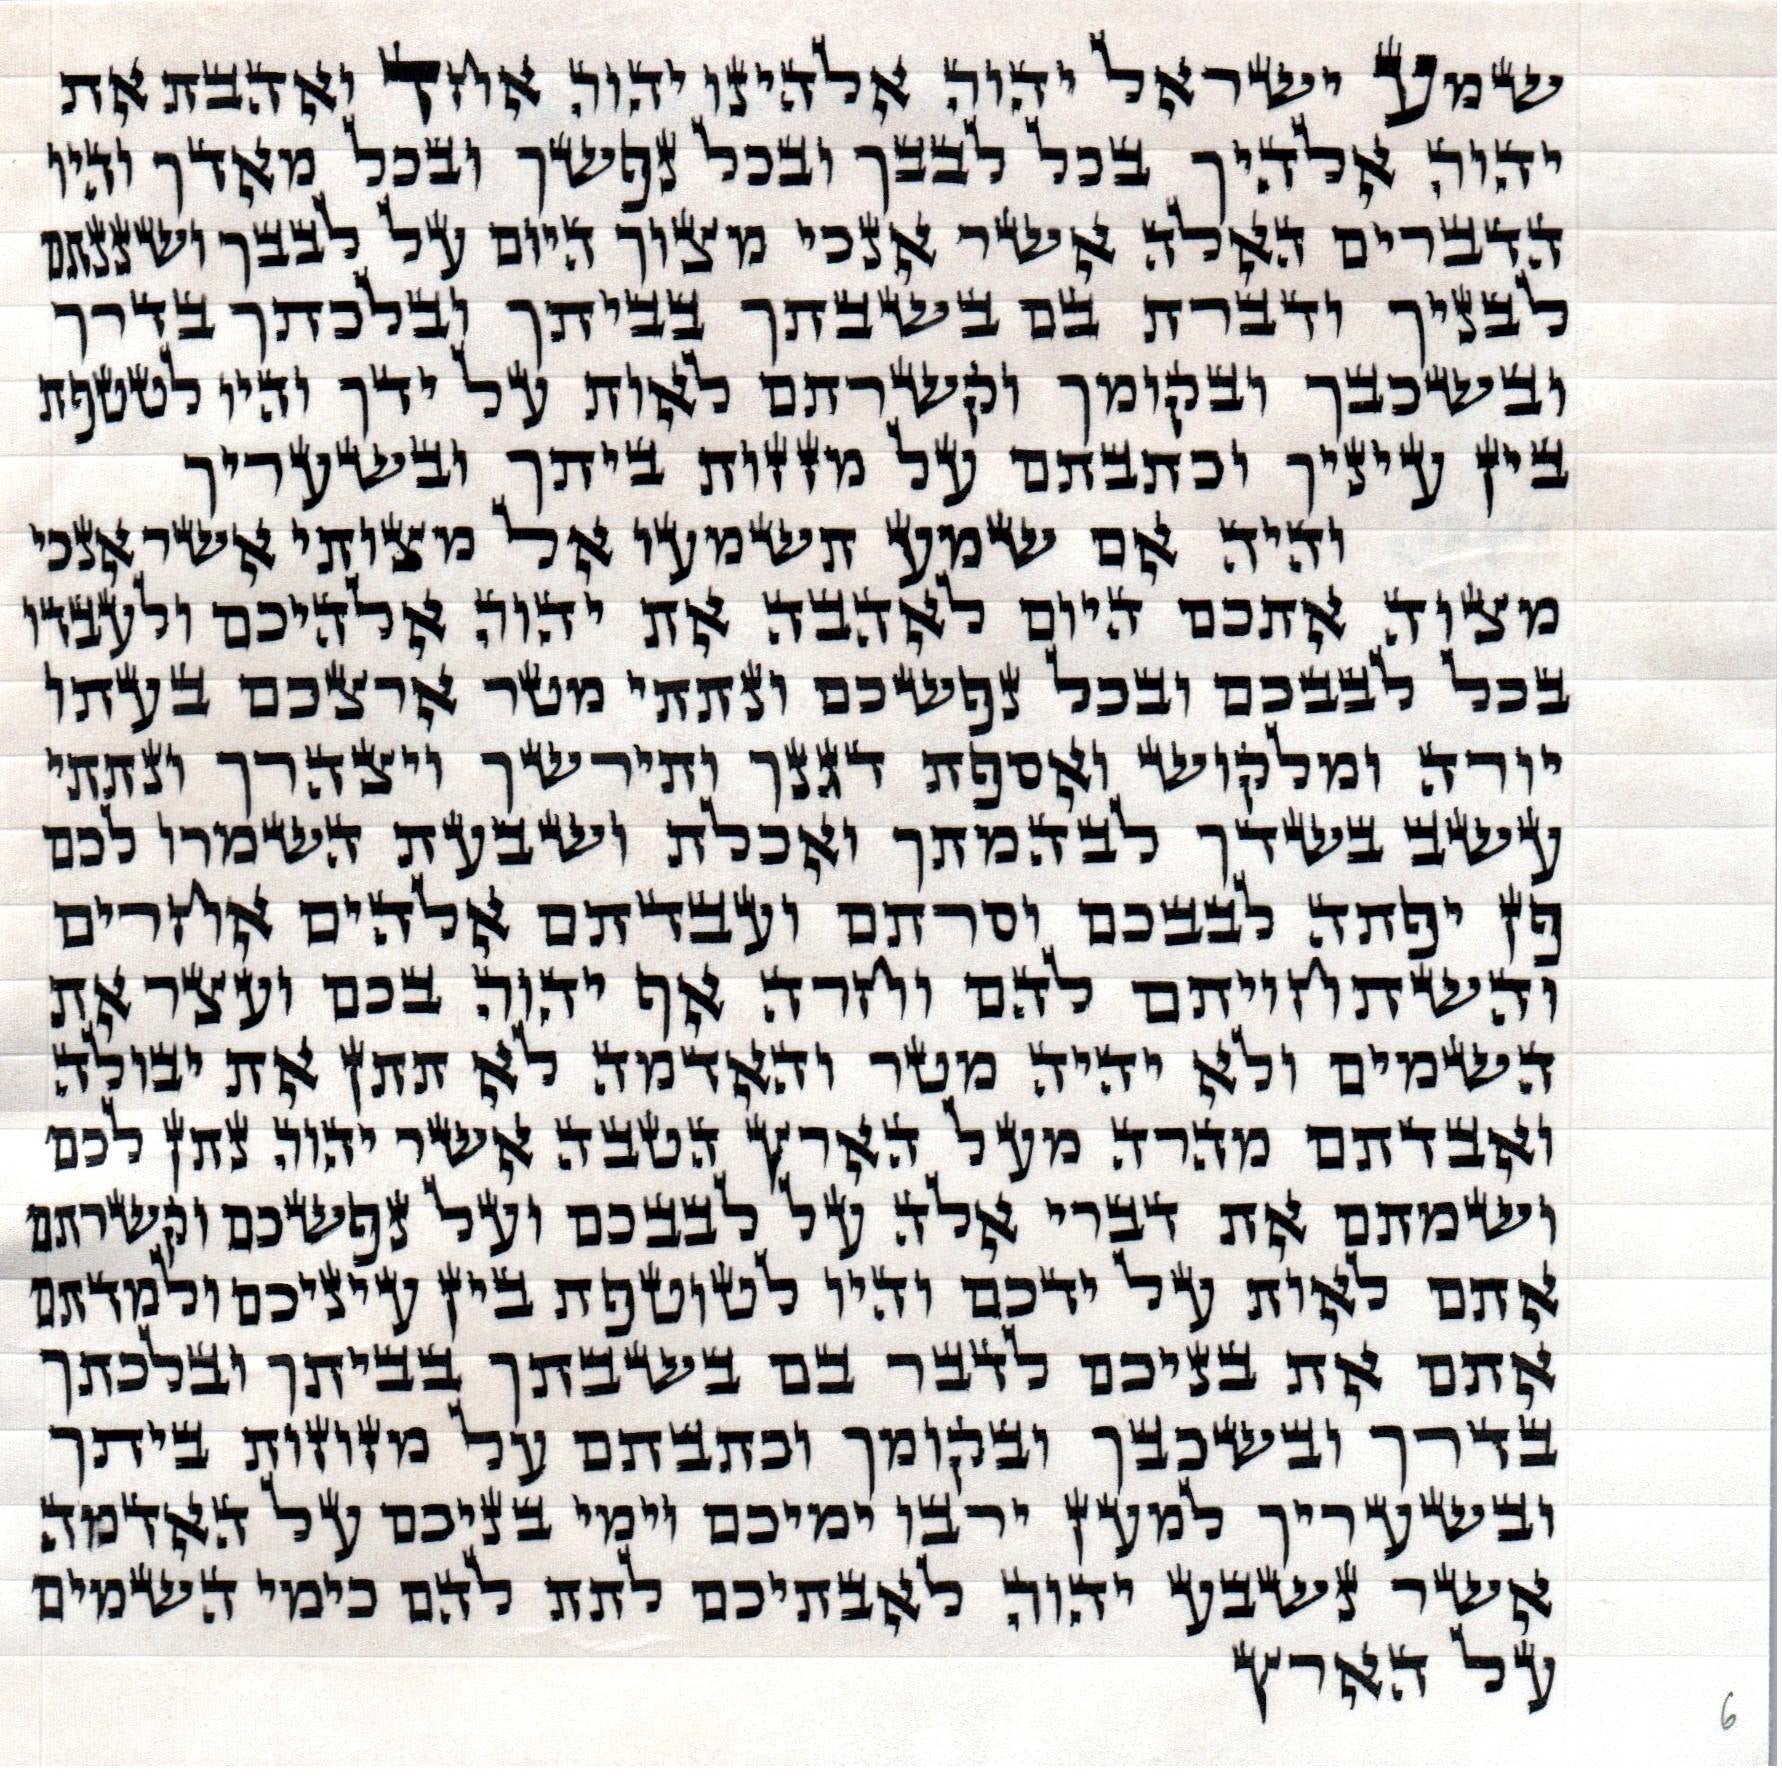 שמע ישראל יהוה אלהינו יהוה אחד ואהבת את
יהוה אלהיך בכל לבבך ובכל נפשך ובכל מאדך והיו
הדברים האלה אשר אנכי מצוך היום על לבבך ושננתם
לבניך ודברת בם בשבתך בביתך ובלכתך בדרך
ובשכבך ובקומך וקשרתם לאות על ידך והיו לטטפת
בין עיניך וכתבתם על מזזות ביתך ובשעריך
והיה אם שמע תשמעו אל מצותי אשר אנכי
מצוה אתכם היום לאהבה את יהוה אלהיכם ולעבדו
בכל לבבכם ובכל נפשכם ונתתי מטר ארצכם בעתו
יורה ומלקוש ואספת דגנך ותירשך ויצהרך ונתתי
עשב בשדך לבהמתך ואכלת ושבעת השמרו לכם
פן יפתה לבבכם וסרתם ועבדתם אלהים אחרים
והשתחויתם להם וחרה אף יהוה בכם ועצר את
השמים ולא יהיה מטר והאדמה לא תתן את יבולה
ואבדתם מהרה מעל הארץ הטבה אשר יהוה נתן לכם
ושמתם את דברי אלה על לבבכם ועל נפשכם וקשרתם
אתם לאות על ידכם והיו לטוטפת בין עיניכם ולמדתם
אתם את בניכם לדבר בם בשבתך בביתך ובלכתך
בדרך ובשכבך ובקומך וכתבתם על מזוזות ביתך
ובשעריך למען ירבו ימיכם וימי בניכם על האדמה
אשר נשבע יהוה לאבתיכם לתת להם כימי השמים
על הארץ
6